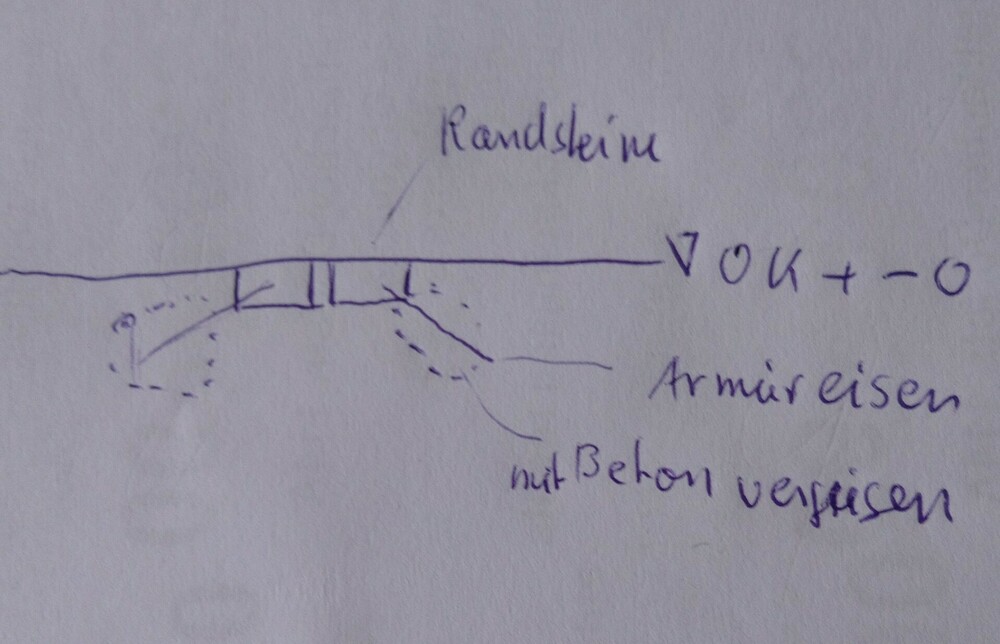 Randsteine
∇ OK + - O
Armiereisen
mit Beton vergiesen